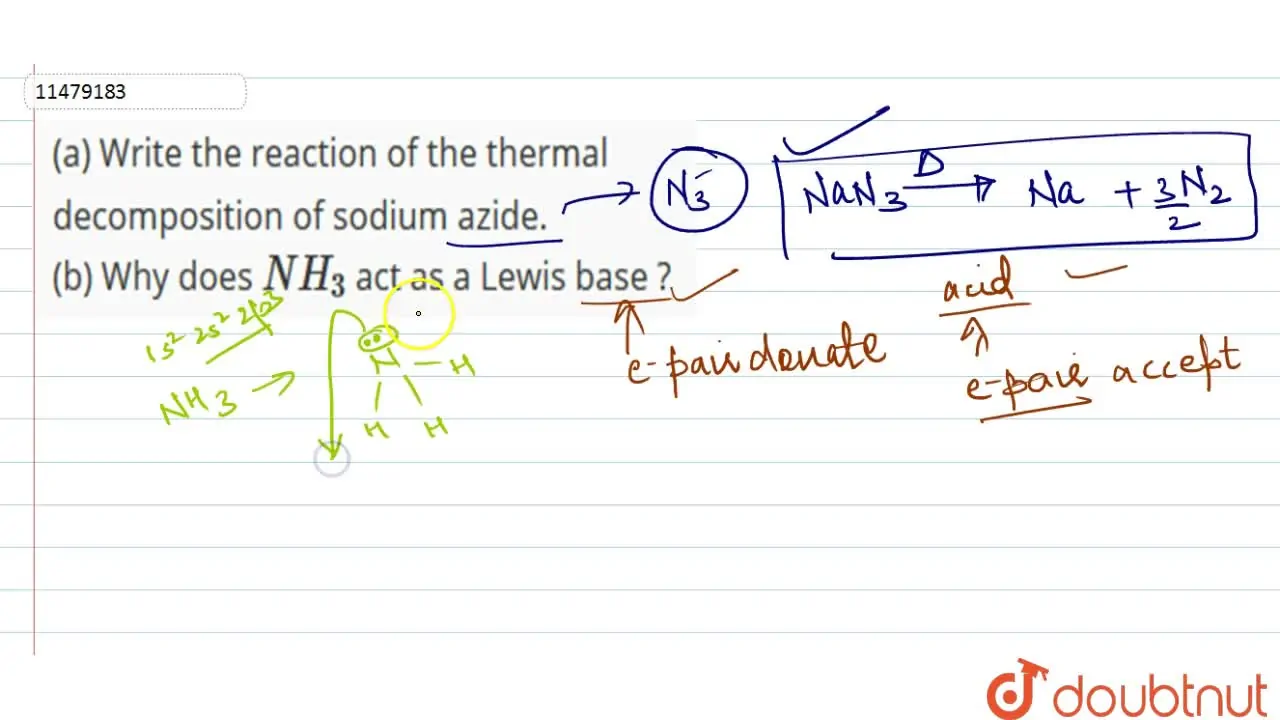 11479183
(a) Write the reaction of the thermal
decomposition of sodium azide.
(b) Why does NH₃ act as a Lewis base ?
N₃⁻
NaN₃ —Δ→ Na + 3/2 N₂
acid
e-pair donate
e-pair accept
1s² 2s² 2p³
NH₃ →
N – H
H H
doubtnut